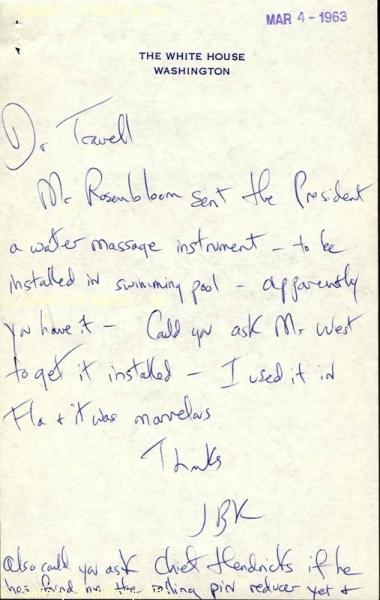 MAR 4 - 1963
THE WHITE HOUSE
WASHINGTON
Dr Travell
Mr Rosenbloom sent the President
a water massage instrument – to be
installed in swimming pool – apparently
you have it – Could you ask Mr West
to get it installed – I used it in
Fla & it was marvelous
Thanks
JBK
Also could you ask Chief Hendricks if he
has found me the rolling pin reducer yet &